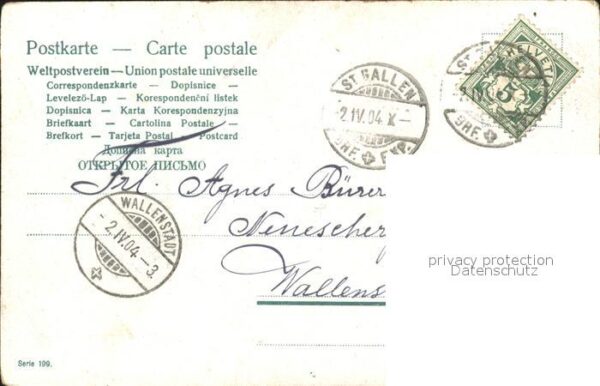 Postkarte — Carte postale
Weltpostverein — Union postale universelle
Correspondenzkarte — Dopisnice -
Levelező-Lap — Korespondenční listek
Dopisnica — Karta Korespondenzyjna
Briefkaart — Cartolina Postale —
Brefkort — Tarjeta Postal — Postcard
Дописна карта
ОТКРЫТОЕ ПИСЬМО
ST. GALLEN
- 2.IV.04. X -
BHF. EXP.
HELVETIA
5
ST. GALLEN
BHF.
Frl. Agnes Bürer
Neuescher
Wallens
WALLENSTADT
- 2.IV.04. - 3.
privacy protection
Datenschutz
Serie 199.